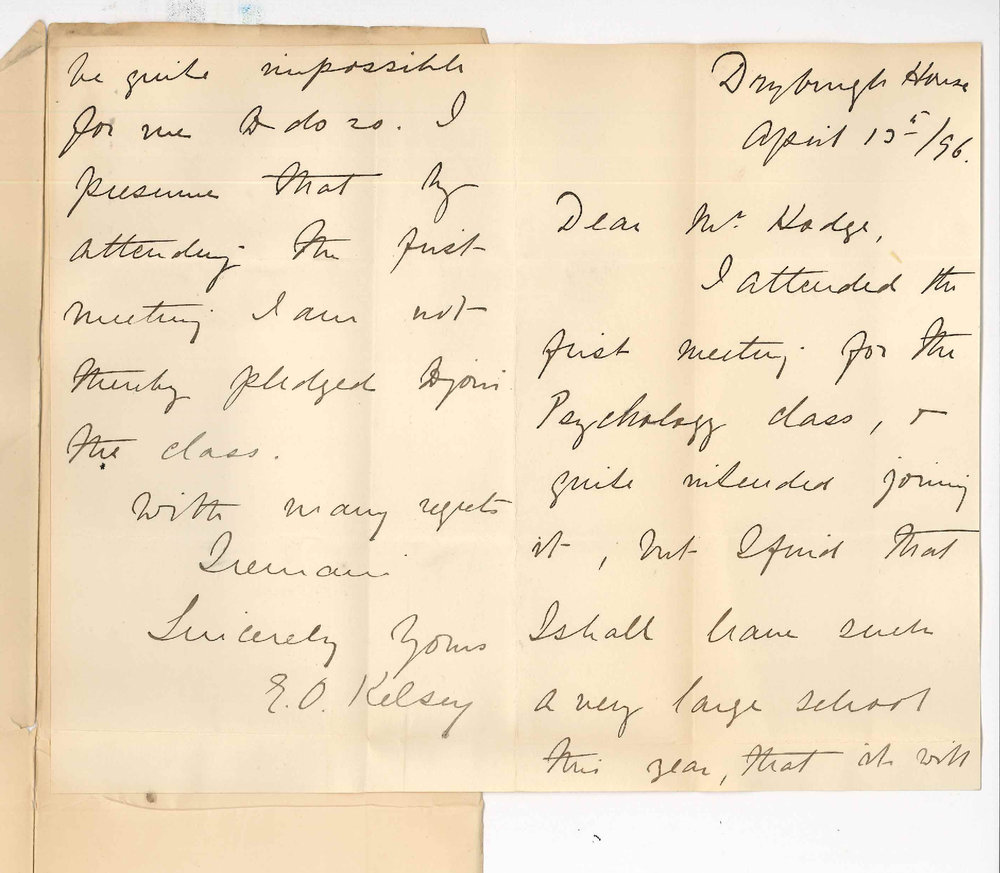 Dryburgh House
April 15th/96.
Dear Mr. Hodge,
I attended the
first meeting for the
Psychology class, &
quite intended joining
it, but I find that
I shall have such
a very large school
this year, that it will
be quite impossible
for me to do so. I
presume that by
attending the first
meeting I am not
thereby pledged to join
the class.
With many regrets
I remain
Sincerely Yours
E. O. Kelsey